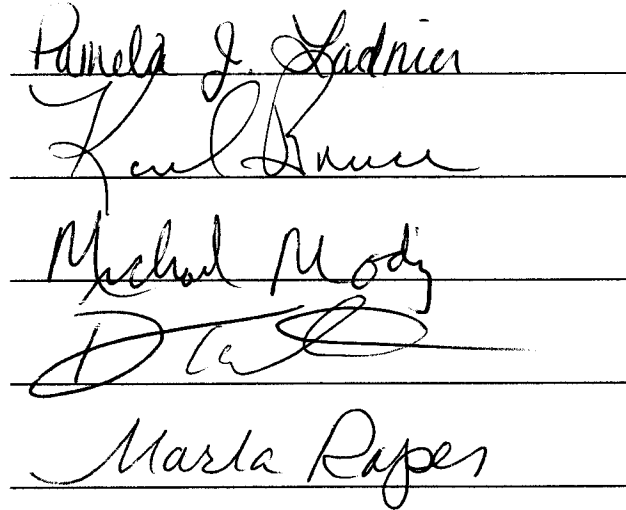 Pamela J. Ladnier
Karl Bruce
Michael Moody
Marla Rapes